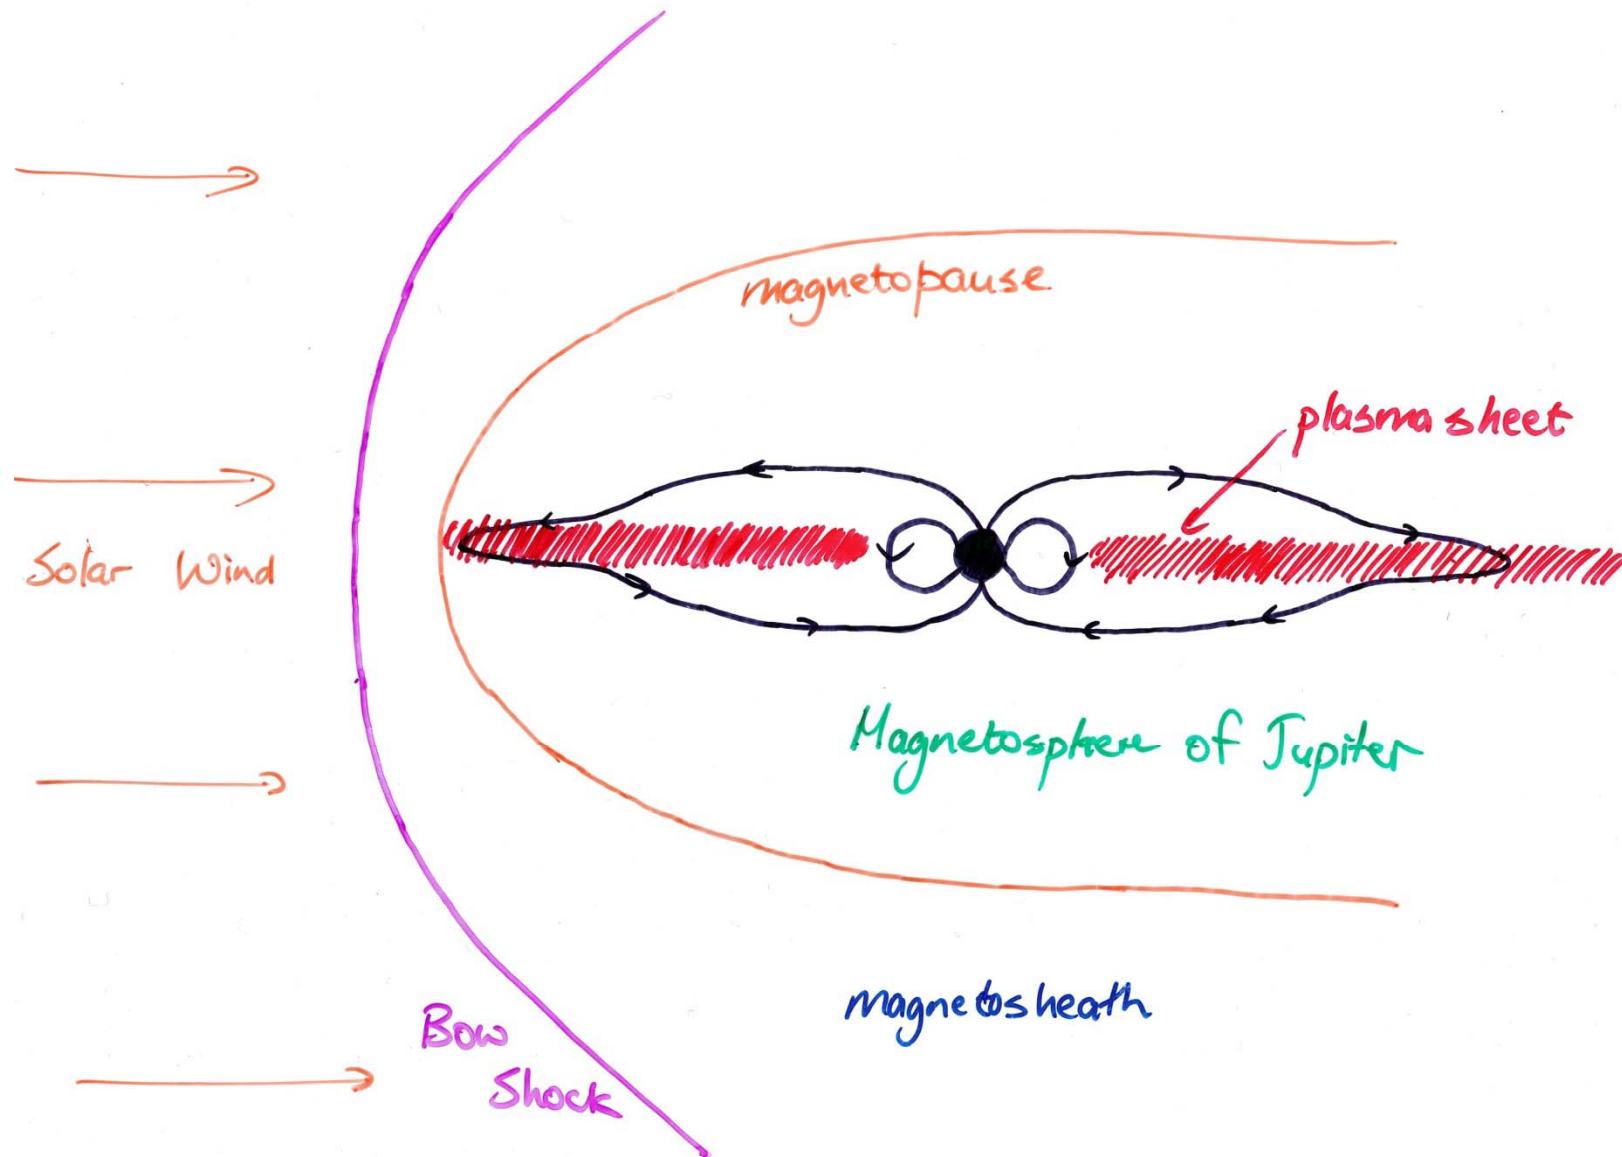 magnetopause
plasma sheet
Solar Wind
Magnetosphere of Jupiter
magnetosheath
Bow
Shock